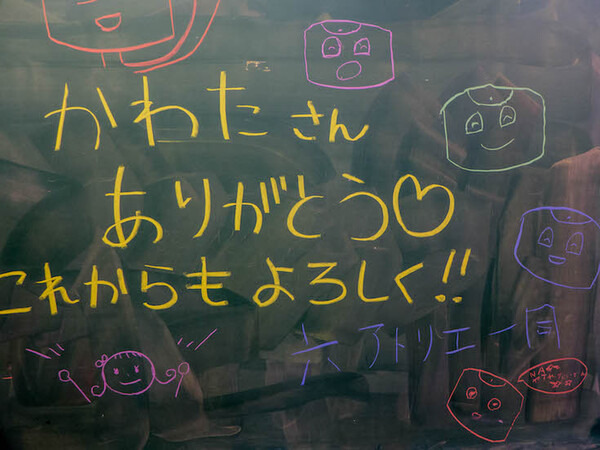 かわたさん
ありがとう♡
これからもよろしく!!
六アトリエ一同